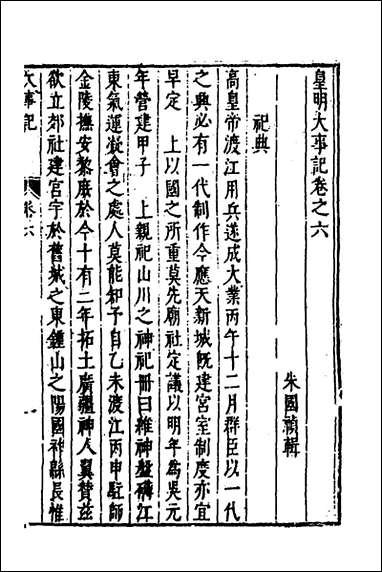 皇明大事記卷之六
朱國禎輯
祀典
高皇帝渡江用兵遂成大業丙午十二月群臣以一代
之興必有一代制作今應天新城既建宮室制度亦宜
早定 上以國之所重莫先廟社定議以明年為吳元
年營建甲子 上親祀山川之神祀冊曰維神盤礴江
東氣運凝會之處人莫能知予自乙未渡江丙申駐師
金陵撫安黎庶於今十有二年拓土廣疆神人翼贊茲
欲立郊社建宮宇於舊城之東鍾山之陽國祚縣長惟
大事記 卷六